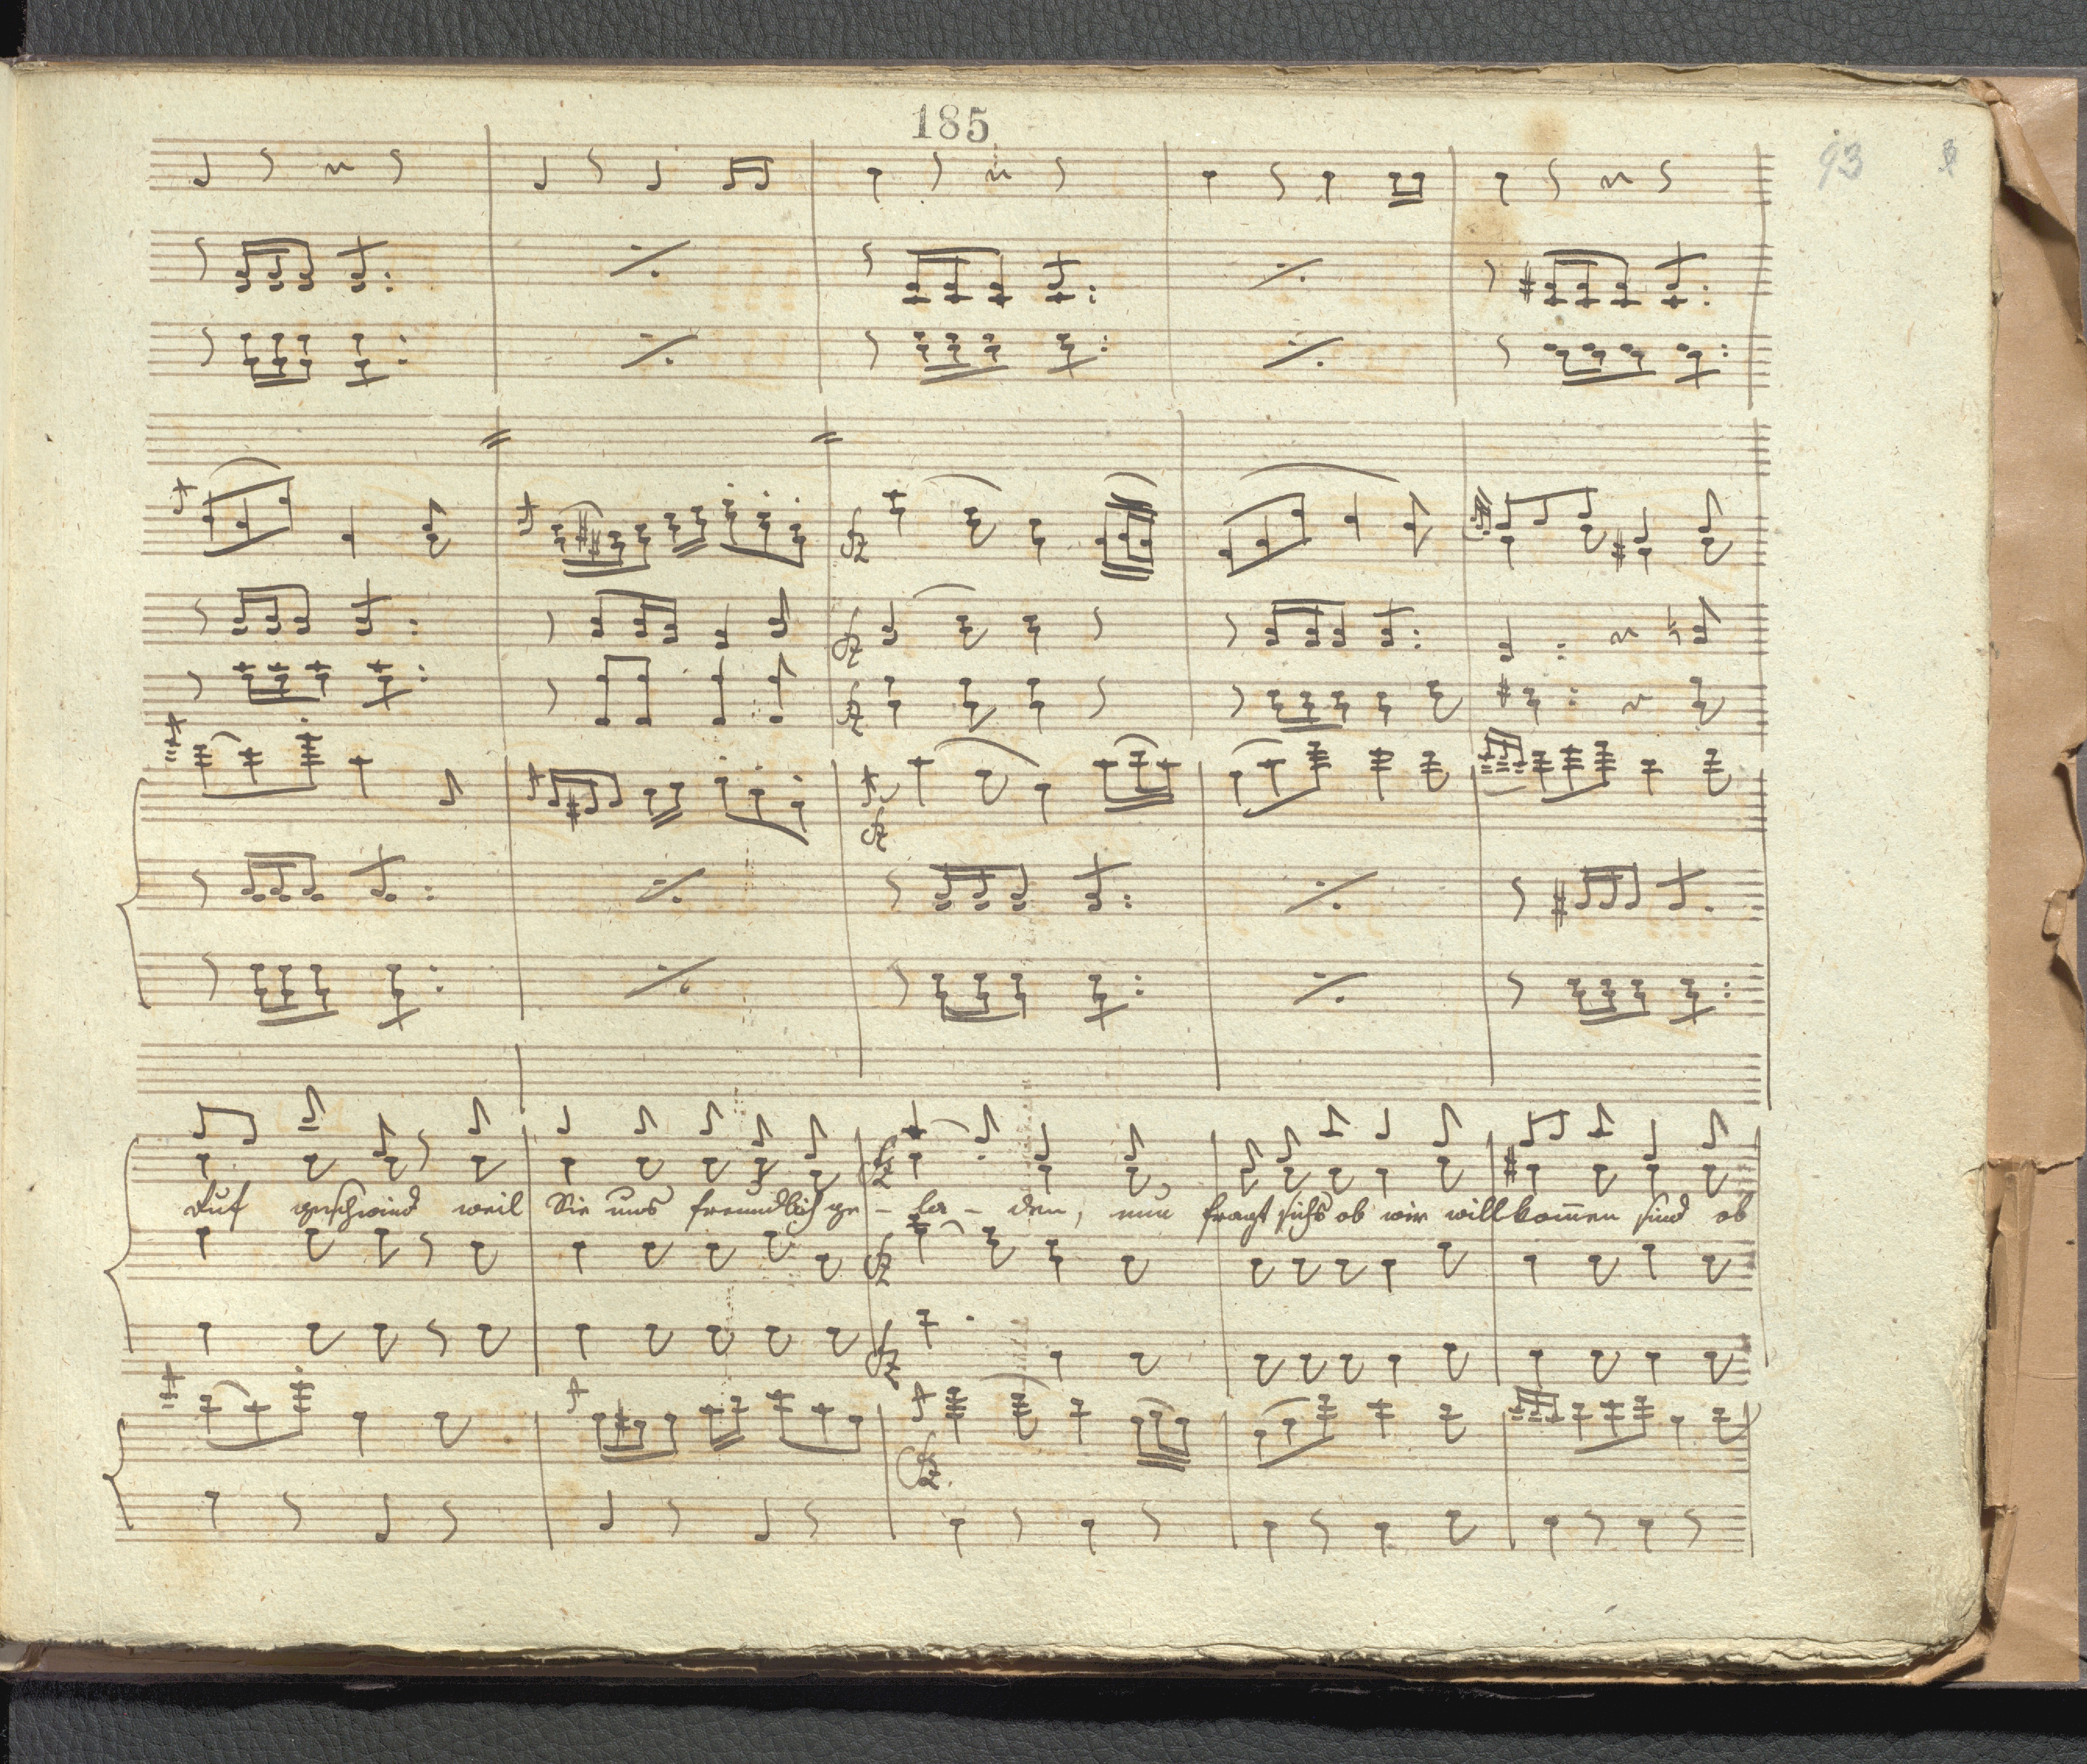 185
93
auf geschwind weil Sie uns freundlich ge - la - den, nun fragt sichs ob wir willkom̅en sind ob